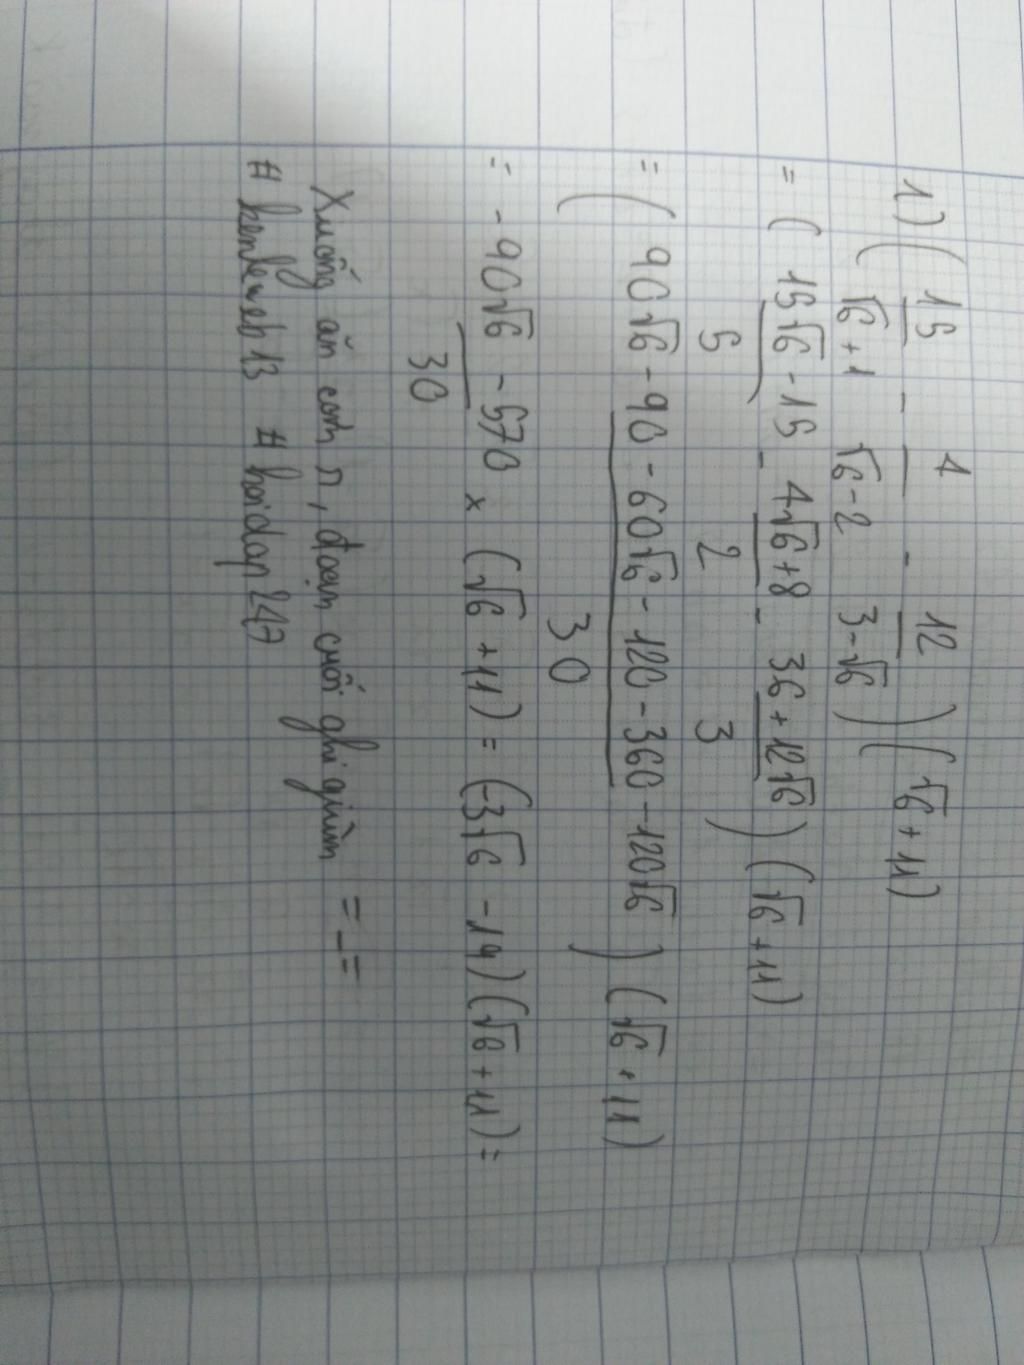 1) ( 15/(√6+1) - 4/(√6-2) - 12/(3-√6) ) (√6+11)
= ( (15√6-15)/5 - (4√6+8)/2 - (36+12√6)/3 ) (√6+11)
= ( (90√6-90-60√6-120-360-120√6)/30 ) (√6+11)
= (-90√6-570)/30 × (√6+11) = (-3√6-19)(√6+11) =
Xuống ăn cơm r, đoạn cuối ghi giùm =_=
# hoidap247